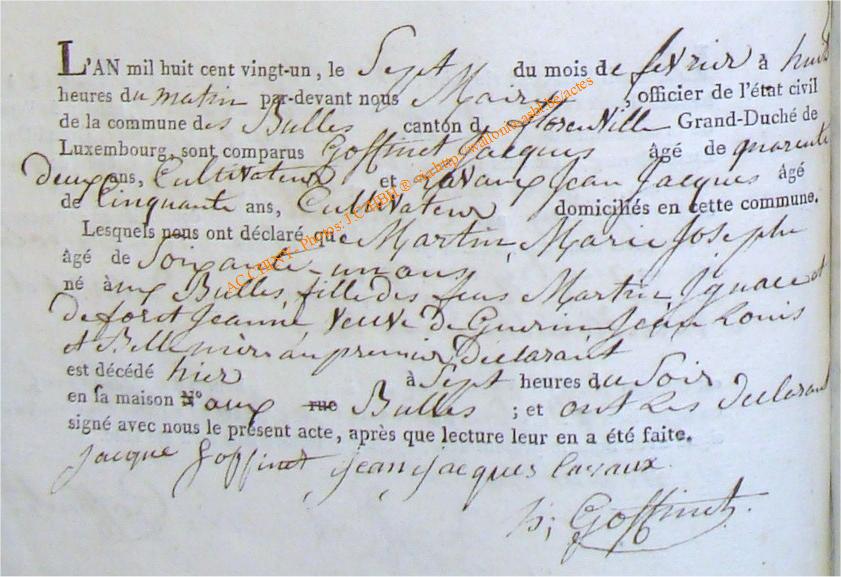 L'AN mil huit cent vingt-un, le Sept du mois de fevrier à huit
heures du matin par-devant nous Maire, officier de l'état civil
de la commune des Bulles canton de florenville Grand-Duché de
Luxembourg, sont comparus Goffinet Jacques âgé de quarente
deux ans, Cultivateur et Lavaux Jean Jacques âgé
de Cinquante ans, Cultivateur domiciliés en cette commune.
Lesquels nous ont déclaré que Martin, Marie Joseph
âgé de Soixante-un ans
né à ux Bulles, fille des feus Martin Ignace et
de foret Jeanne veuve de Guerin Jean Louis
et Belle mère au premier Declarant
est décédé hier à Sept heures du Soir
en sa maison N° aux rue Bulles ; et ont les declarant
signé avec nous le présent acte, après que lecture leur en a été faite.
jacque Goffinet jean jacques lavaux
Goffinet
AC CHINY - Photos: J.C. ®